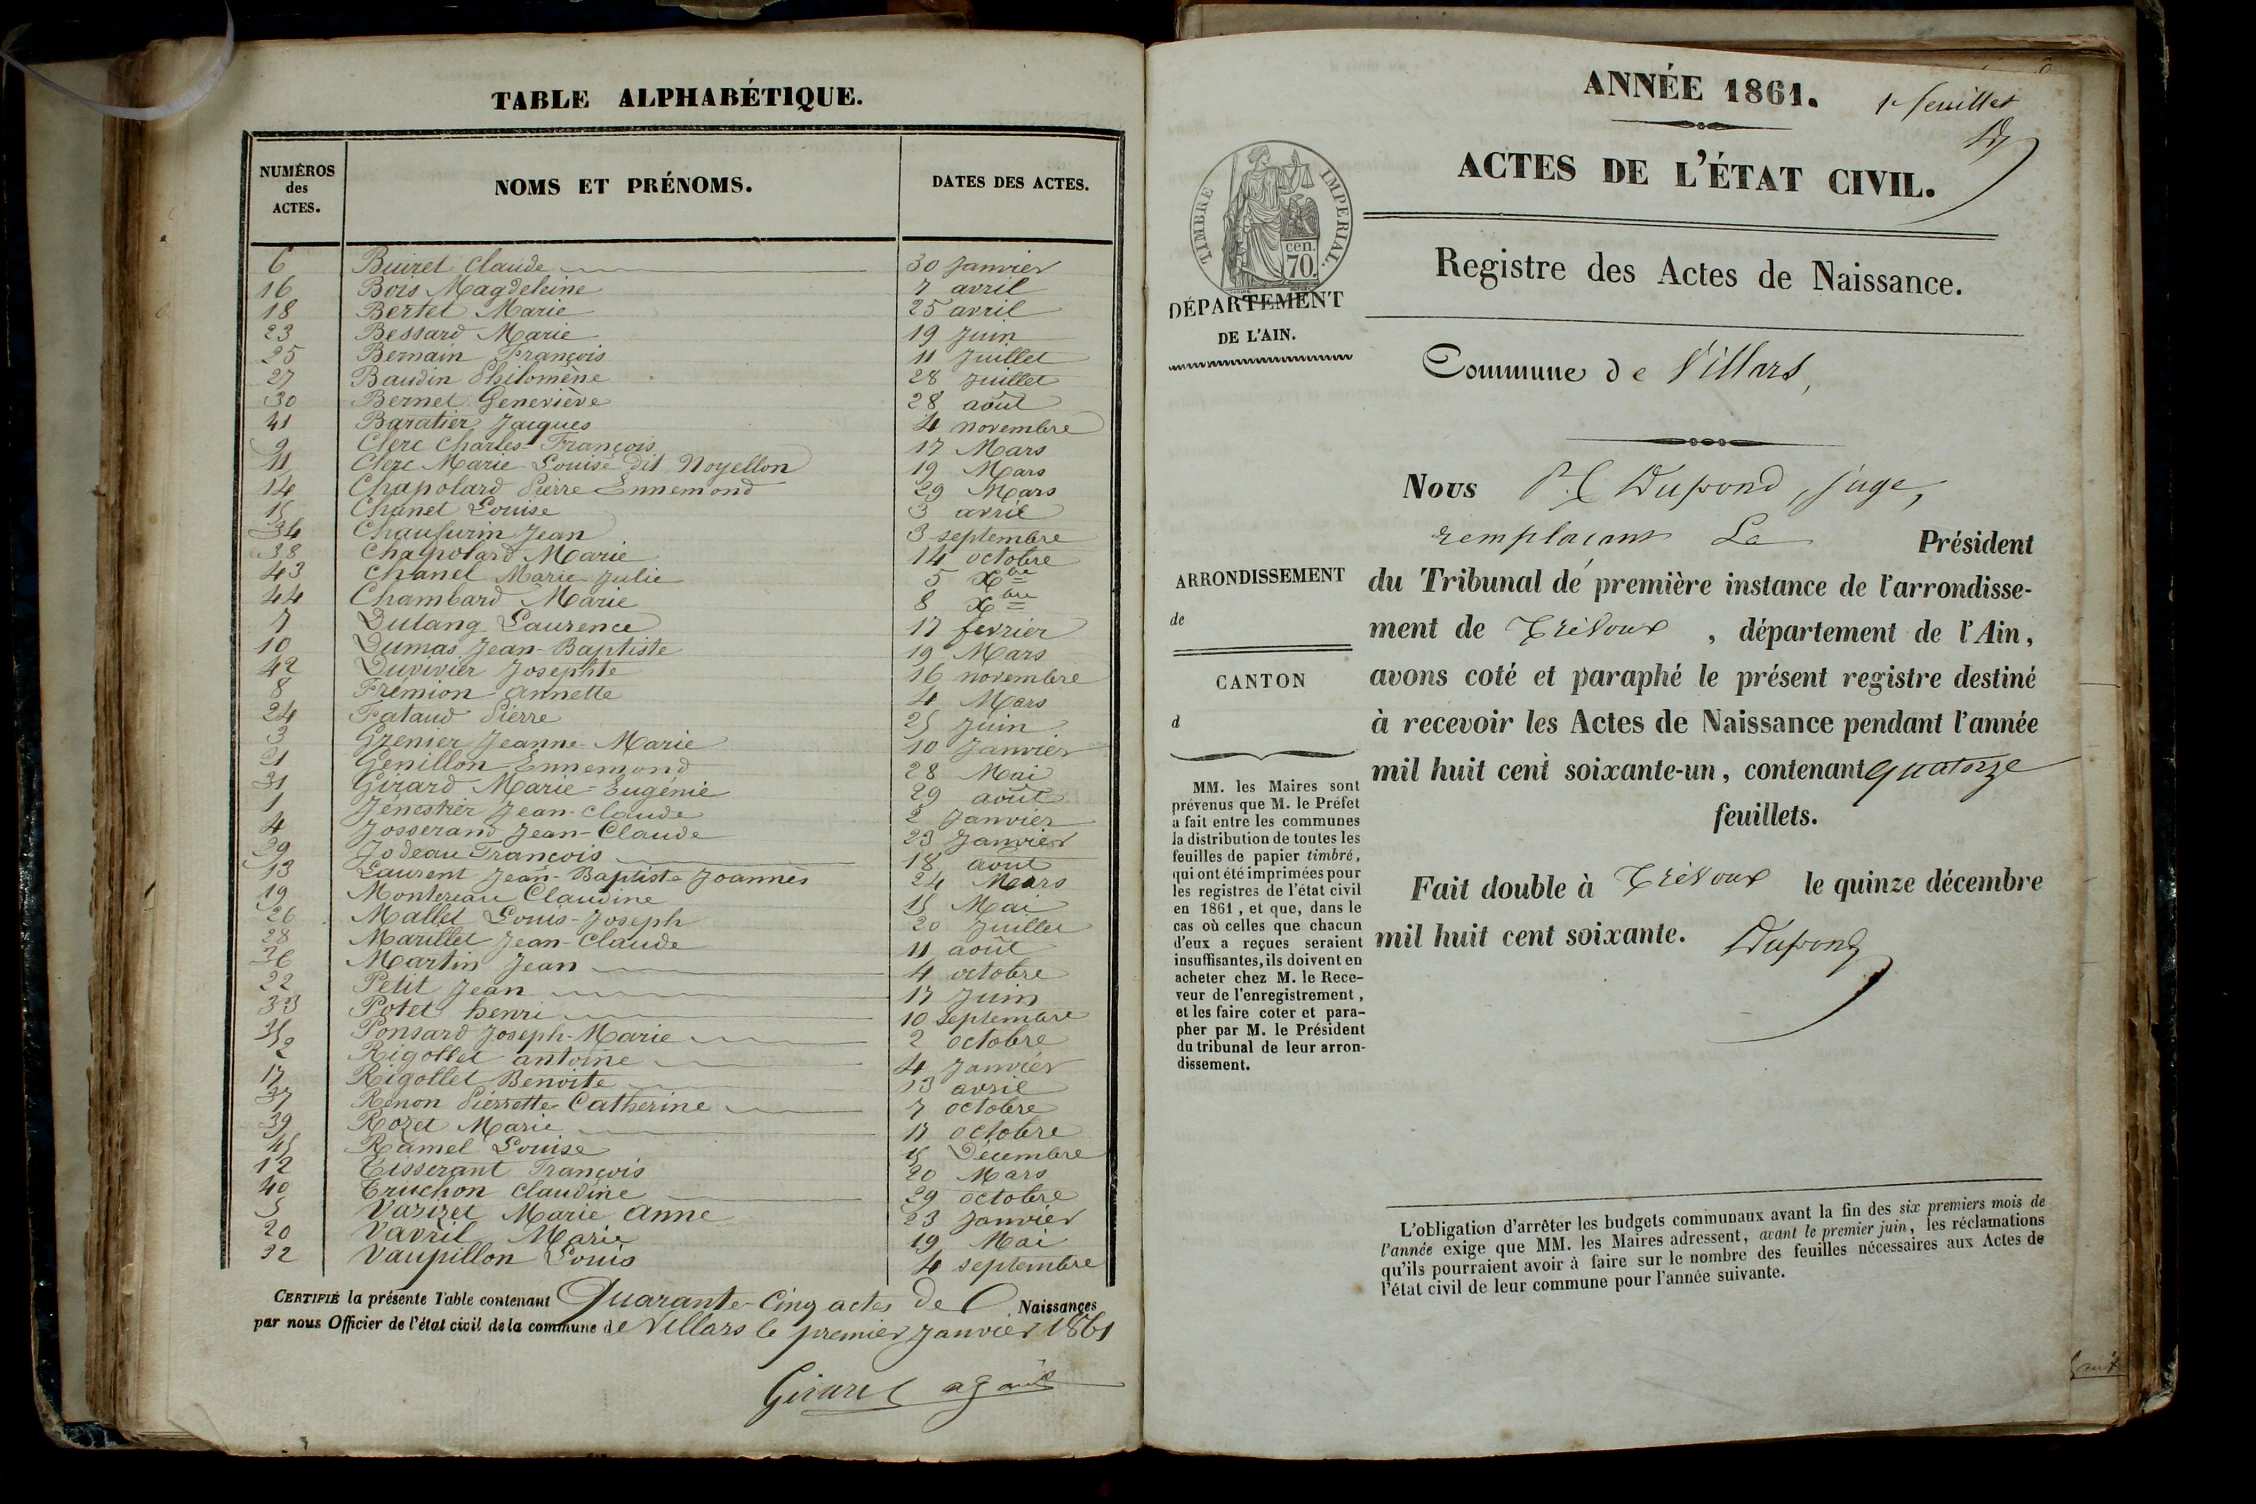 TABLE ALPHABÉTIQUE.
NUMÉROS des ACTES. NOMS ET PRÉNOMS. DATES DES ACTES.
6 Buiret Claude 30 Janvier
16 Bois Magdeleine 7 avril
18 Bertet Marie 25 avril
23 Bessard Marie 19 Juin
25 Bernain François 11 Juillet
27 Baudin Philomène 28 Juillet
30 Bernet Geneviève 28 août
41 Baratier Jacques 4 novembre
9 Clerc Charles-François 17 Mars
11 Clerc Marie Louise dit Noyellon 19 Mars
14 Chapolard Pierre Ennemond 29 Mars
15 Chanel Louise 3 avril
34 Chaufurin Jean 3 septembre
38 Chapolard Marie 14 octobre
43 Chanel Marie-Julie 5 Xbre
44 Chambard Marie 8 Xbre
7 Dutang Laurence 17 fevrier
10 Dumas Jean-Baptiste 19 Mars
42 Duvivier Josephte 16 novembre
8 Frémion Annette 4 Mars
24 Fataud Pierre 25 Juin
3 Grenier Jeanne-Marie 10 Janvier
21 Genillon Ennemond 28 Mai
31 Girard Marie-Eugénie 29 août
1 Jenestier Jean-Claude 2 Janvier
4 Josserand Jean-Claude 23 Janvier
29 Jodeau François 18 août
13 Laurent Jean-Baptiste Joannès 24 Mars
19 Montereau Claudine 15 Mai
26 Mallet Louis-Joseph 20 Juillet
28 Marillet Jean-Claude 11 août
36 Martin Jean 4 octobre
22 Petit Jean 17 Juin
33 Potet henri 10 Septembre
35 Ponsard Joseph-Marie 2 octobre
2 Rigollet antoine 4 Janvier
17 Rigollet Benoite 13 avril
37 Renon Pierrette Catherine 7 octobre
39 Rozet Marie 17 octobre
45 Ramel Louise 15 Décembre
12 Tisserant François 20 Mars
40 Truchon Claudine 29 octobre
5 Varizet Marie Anne 23 Janvier
20 Vavril Marie 19 Mai
32 Vaupillon Louis 4 septembre
CERTIFIÉ la présente Table contenant Quarante-Cinq actes de Naissances
par nous Officier de l'état civil de la commune de Villars le premier Janvier 1861
Girard
ANNÉE 1861.
1er feuillet
ACTES DE L'ÉTAT CIVIL.
TIMBRE IMPERIAL.
cen.
70.
DÉPARTEMENT
DE L'AIN.
Registre des Actes de Naissance.
Commune de Villars,
Nous Dupond, juge,
remplaçant Le Président
du Tribunal de première instance de l'arrondisse-
ment de Trévoux, département de l'Ain,
avons coté et paraphé le présent registre destiné
à recevoir les Actes de Naissance pendant l'année
mil huit cent soixante-un, contenant quatorze
feuillets.
Fait double à Trévoux le quinze décembre
mil huit cent soixante.
Dupond
ARRONDISSEMENT
de
CANTON
d
MM. les Maires sont
prévenus que M. le Préfet
a fait entre les communes
la distribution de toutes les
feuilles de papier timbré,
qui ont été imprimées pour
les registres de l'état civil
en 1861, et que, dans le
cas où celles que chacun
d'eux a reçues seraient
insuffisantes, ils doivent en
acheter chez M. le Rece-
veur de l'enregistrement,
et les faire coter et para-
pher par M. le Président
du tribunal de leur arron-
dissement.
L'obligation d'arrêter les budgets communaux avant la fin des six premiers mois de
l'année exige que MM. les Maires adressent, avant le premier juin, les réclamations
qu'ils pourraient avoir à faire sur le nombre des feuilles nécessaires aux Actes de
l'état civil de leur commune pour l'année suivante.